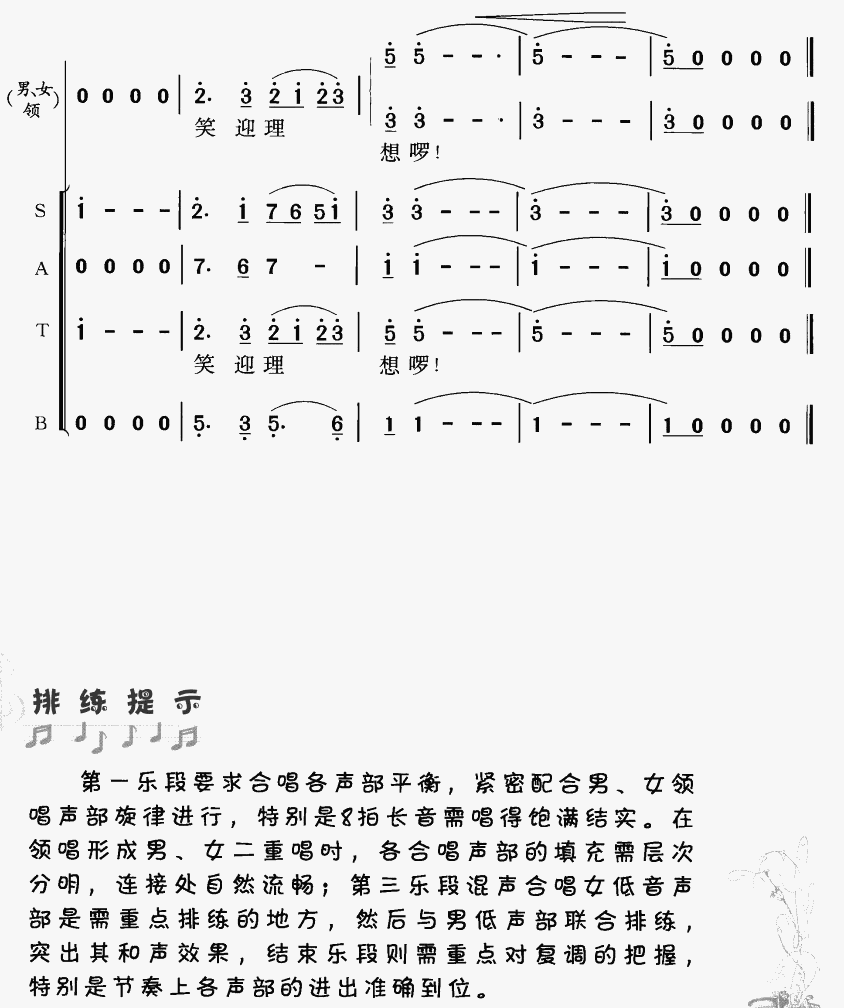 5 5 - - · | 5 - - - | 5 0 0 0 0
(男、女领) 0 0 0 0 | 2· 3 2 1 2 3 |
3 3 - - · | 3 - - - | 3 0 0 0 0
笑 迎 理
想 啰!
S 1 - - - | 2· 1 7 6 5 1 | 3 3 - - - | 3 - - - | 3 0 0 0 0
A 0 0 0 0 | 7· 6 7 - | 1 1 - - - | 1 - - - | 1 0 0 0 0
T 1 - - - | 2· 3 2 1 2 3 | 5 5 - - - | 5 - - - | 5 0 0 0 0
笑 迎 理 想 啰!
B 0 0 0 0 | 5· 3 5· 6 | 1 1 - - - | 1 - - - | 1 0 0 0 0
排练提示
第一乐段要求合唱各声部平衡，紧密配合男、女领
唱声部旋律进行，特别是8拍长音需唱得饱满结实。在
领唱形成男、女二重唱时，各合唱声部的填充需层次
分明，连接处自然流畅；第三乐段混声合唱女低音声
部是需重点排练的地方，然后与男低声部联合排练，
突出其和声效果，结束乐段则需重点对复调的把握，
特别是节奏上各声部的进出准确到位。